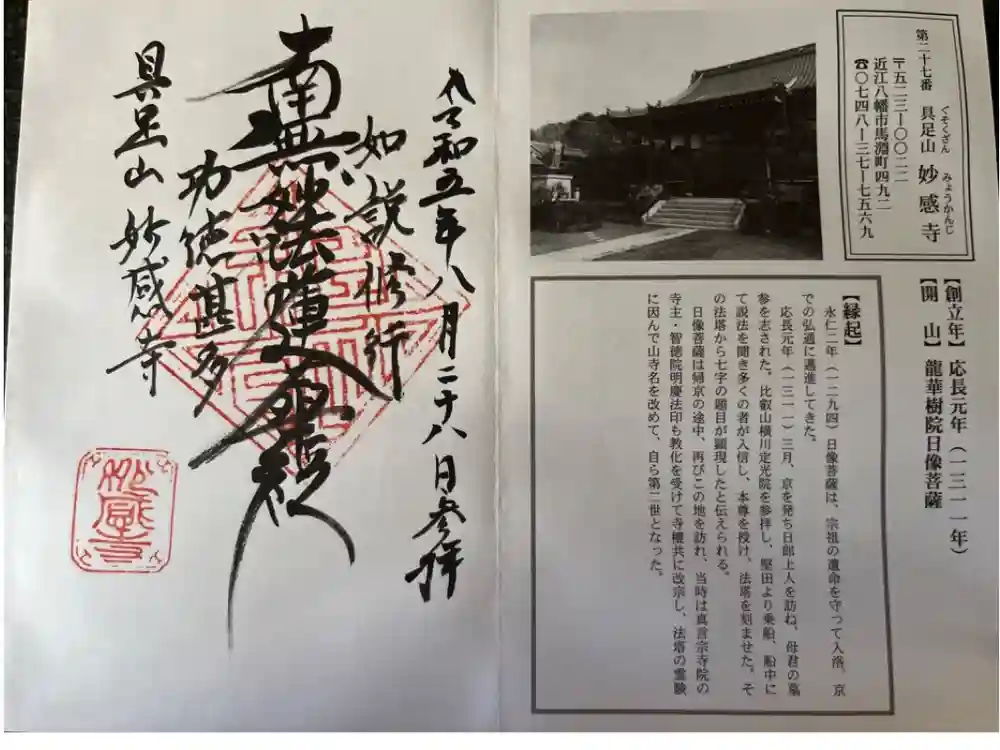 第二十七番 具足山 妙感寺
ぐそくざん みょうかんじ
〒五二三－〇〇二二
近江八幡市馬淵町四九二
☎〇七四八－三七－七五六九
【創立年】応長元年（一三一一年）
【開　山】龍華樹院日像菩薩
【縁起】
永仁二年（一二九四）日像菩薩は、宗祖の遺命を守って入洛、京
での弘通に邁進してきた。
応長元年（一三一一）三月、京を発ち日郎上人を訪ね、母君の墓
参を志された。比叡山横川定光院を参拝し、堅田より乗船、船中に
て説法を聞き多くの者が入信し、本尊を授け、法塔を刻ませた。そ
の法塔から七字の題目が顕現したと伝えられる。
日像菩薩は帰京の途中、再びこの地を訪れ、当時は真言宗寺院の
寺主・智徳院明慶法印も教化を受けて寺檀共に改宗し、法塔の霊験
に因んで山寺名を改めて、自ら第二世となった。
令和五年八月二十八日参拝
如説修行
南無妙法蓮華経
功徳甚多
具足山 妙感寺
妙感寺